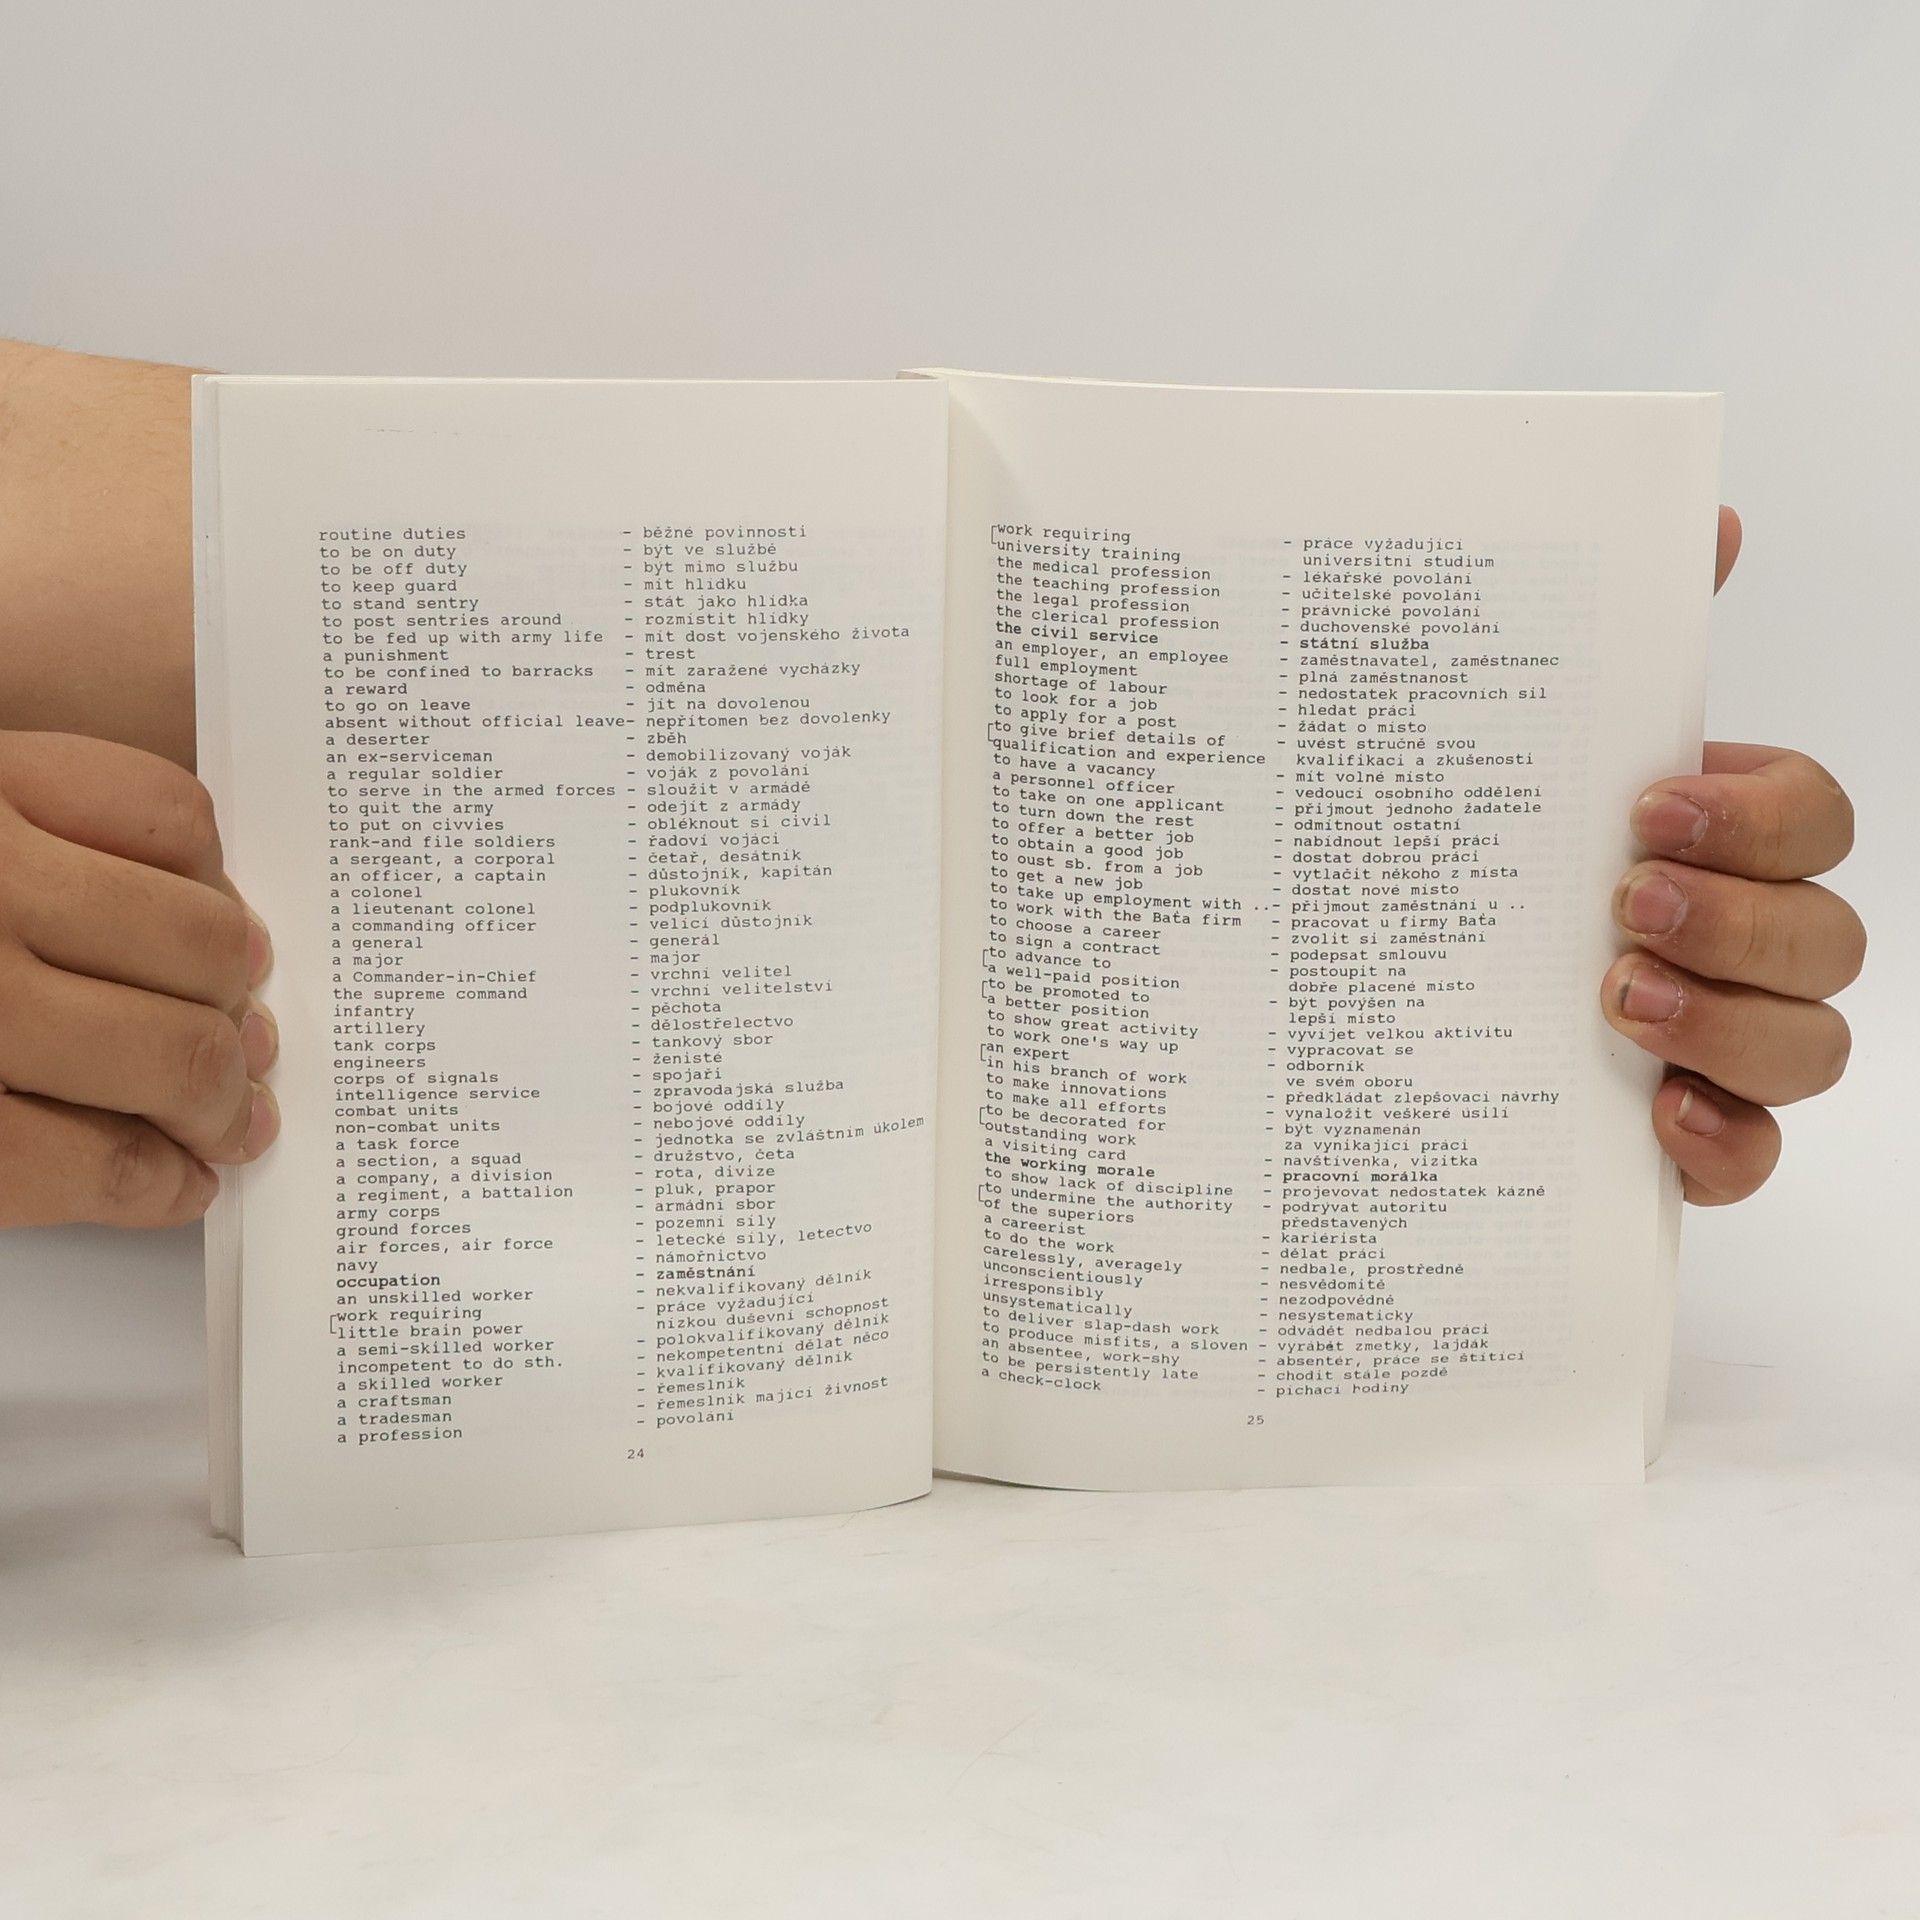 routine duties - běžné povinnosti
to be on duty - být ve službě
to be off duty - být mimo službu
to keep guard - mít hlídku
to stand sentry - stát jako hlídka
to post sentries around - rozmístit hlídky
to be fed up with army life - mít dost vojenského života
a punishment - trest
to be confined to barracks - mít zaražené vycházky
a reward - odměna
to go on leave - jít na dovolenou
absent without official leave- nepřítomen bez dovolenky
a deserter - zběh
an ex-serviceman - demobilizovaný voják
a regular soldier - voják z povolání
to serve in the armed forces - sloužit v armádě
to quit the army - odejít z armády
to put on civvies - obléknout si civil
rank-and file soldiers - řadoví vojáci
a sergeant, a corporal - četař, desátník
an officer, a captain - důstojník, kapitán
a colonel - plukovník
a lieutenant colonel - podplukovník
a commanding officer - velící důstojník
a general - generál
a major - major
a Commander-in-Chief - vrchní velitel
the supreme command - vrchní velitelství
infantry - pěchota
artillery - dělostřelectvo
tank corps - tankový sbor
engineers - ženisté
corps of signals - spojaři
intelligence service - zpravodajská služba
combat units - bojové oddíly
non-combat units - nebojové oddíly
a task force - jednotka se zvláštním úkolem
a section, a squad - družstvo, četa
a company, a division - rota, divize
a regiment, a battalion - pluk, prapor
army corps - armádní sbor
ground forces - pozemní síly
air forces, air force - letecké síly, letectvo
navy - námořnictvo
occupation - zaměstnání
an unskilled worker - nekvalifikovaný dělník
work requiring - práce vyžadující
little brain power nízkou duševní schopnost
a semi-skilled worker - polokvalifikovaný dělník
incompetent to do sth. - nekompetentní dělat něco
a skilled worker - kvalifikovaný dělník
a craftsman - řemeslník
a tradesman - řemeslník mající živnost
a profession - povolání
24
work requiring - práce vyžadující
university training universitní studium
the medical profession - lékařské povolání
the teaching profession - učitelské povolání
the legal profession - právnické povolání
the clerical profession - duchovenské povolání
the civil service - státní služba
an employer, an employee - zaměstnavatel, zaměstnanec
full employment - plná zaměstnanost
shortage of labour - nedostatek pracovních sil
to look for a job - hledat práci
to apply for a post - žádat o místo
to give brief details of - uvést stručně svou
qualification and experience kvalifikaci a zkušenosti
to have a vacancy - mít volné místo
a personnel officer - vedoucí osobního oddělení
to take on one applicant - přijmout jednoho žadatele
to turn down the rest - odmítnout ostatní
to offer a better job - nabídnout lepší práci
to obtain a good job - dostat dobrou práci
to oust sb. from a job - vytlačit někoho z místa
to get a new job - dostat nové místo
to take up employment with ..- přijmout zaměstnání u ..
to work with the Baťa firm - pracovat u firmy Baťa
to choose a career - zvolit si zaměstnání
to sign a contract - podepsat smlouvu
to advance to - postoupit na
a well-paid position dobře placené místo
to be promoted to - být povýšen na
a better position lepší místo
to show great activity - vyvíjet velkou aktivitu
to work one's way up - vypracovat se
an expert - odborník
in his branch of work ve svém oboru
to make innovations - předkládat zlepšovací návrhy
to make all efforts - vynaložit veškeré úsilí
to be decorated for - být vyznamenán
outstanding work za vynikající práci
a visiting card - navštívenka, vizitka
the working morale - pracovní morálka
to show lack of discipline - projevovat nedostatek kázně
to undermine the authority - podrývat autoritu
of the superiors představených
a careerist - kariérista
to do the work - dělat práci
carelessly, averagely - nedbale, prostředně
unconscientiously - nesvědomitě
irresponsibly - nezodpovědně
unsystematically - nesystematicky
to deliver slap-dash work - odvádět nedbalou práci
to produce misfits, a sloven - vyrábět zmetky, lajdák
an absentee, work-shy - absentér, práce se štítící
to be persistently late - chodit stále pozdě
a check-clock - píchací hodiny
25